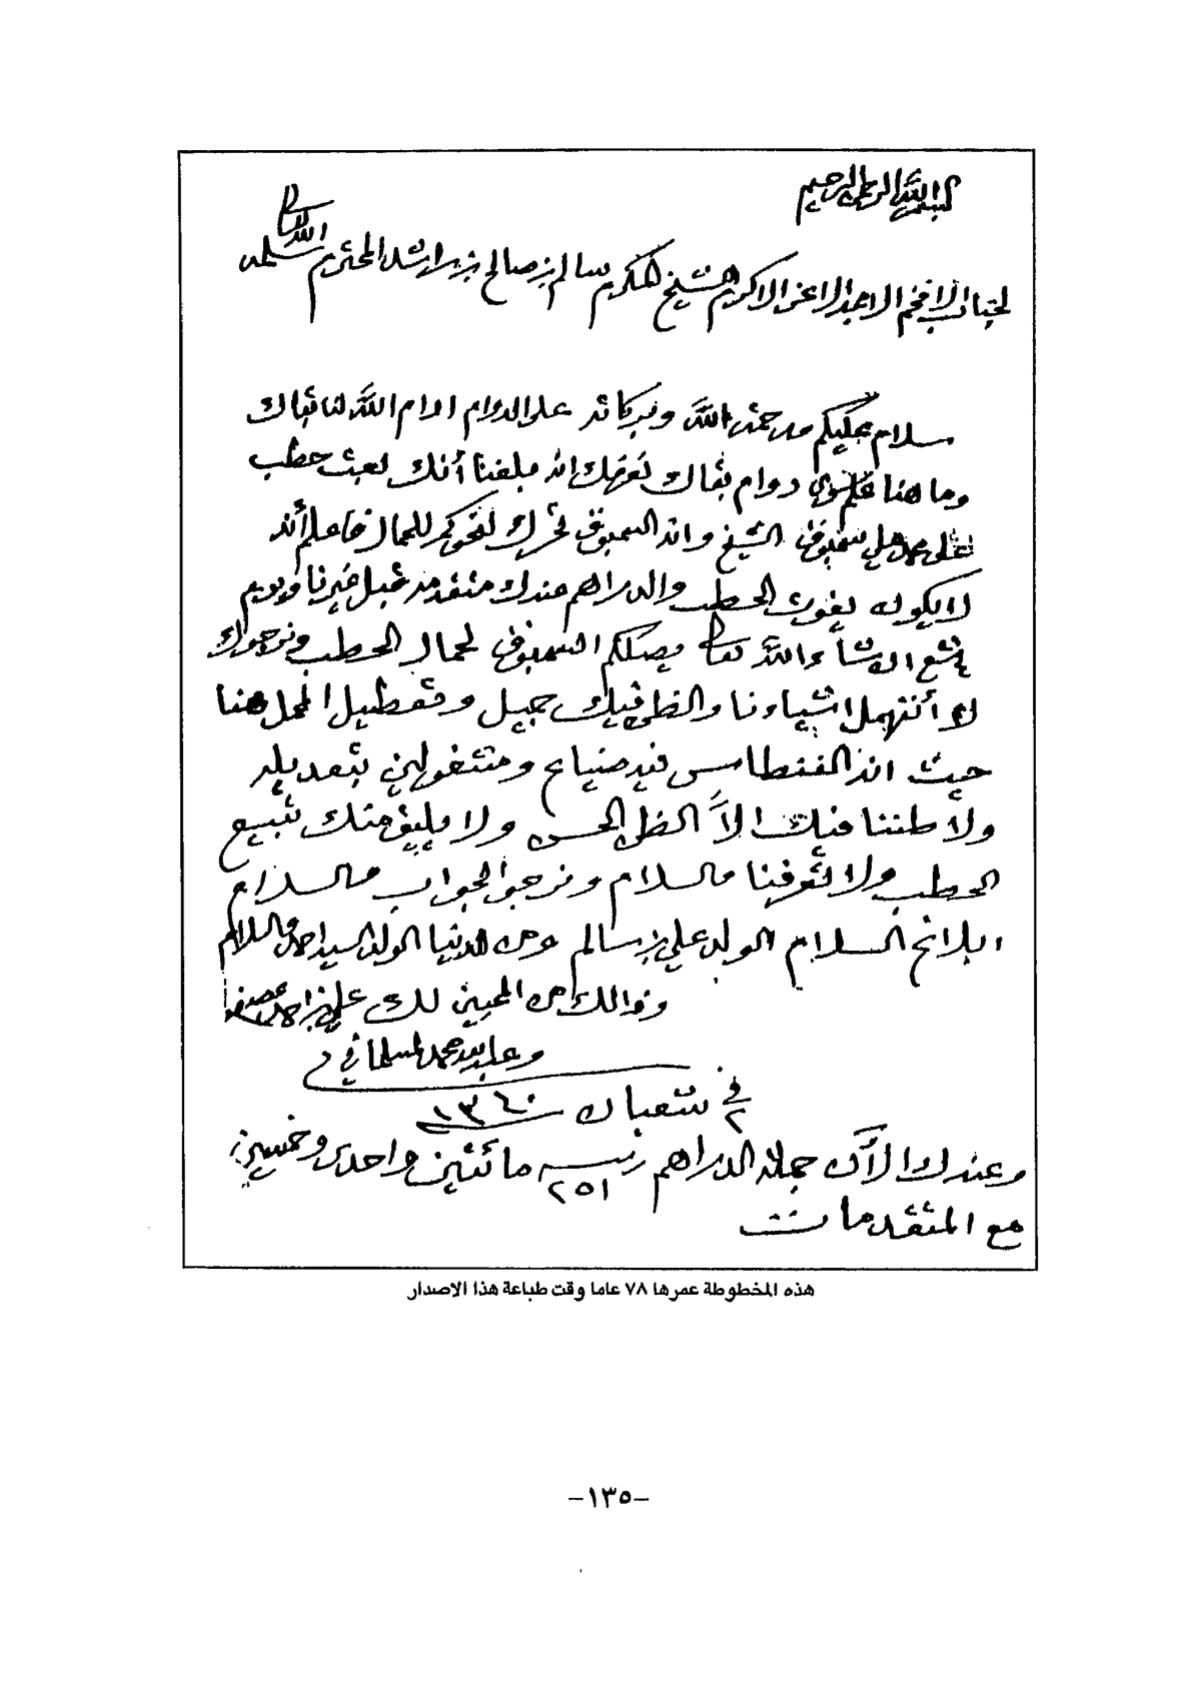 بسم الله الرحمن الرحيم
لجناب الافخم الامجد الاعز الاكرم الشيخ المكرم سالم بن صالح بن راشد المحترم سلمه الله تعالى
سلام عليكم ورحمة الله وبركاته على الدوام ادام الله لنا بقاك
وما هنا علم سوى دوام بقاك نعرفك انه بلغنا أنك بعت حطب
على محمد علي سنبوق الشيخ وانه السنبوق تحرك لنحوكم للحمال فاعلم أنه
لا يكون يفوت الحطب والدراهم عندك متقدمه قبل غيرنا ويوم
تاسع ان شاء الله تعالى يصلكم السنبوق لحمال الحطب ونرجوك
لا أنتهمل اشياءنا والظن فيك جميل وتعطيل المحمل هنا
حيث انه الفنطاس فيه ضياع ومشغولين بتعديله
ولا ظننا فيك الا الظن الحسن ولا يليق منك تبيع
الحطب ولا تعرفنا والسلام ونرجو الجواب والسلام
ابلاغ السلام الولد علي بن سالم ومن لدينا الولد السيد احمد والسلام
وذالك من المحبين لك علي بن احمد
وعابد محمد
في ٢ شعبان ١٣٦٠
وعندك الآن جملة الدراهم ربيه مائتين واحدى وخمسين
٢٥١
مع المتقدمات
هذه المخطوطة عمرها ٧٨ عاما وقت طباعة هذا الاصدار
-١٣٥-